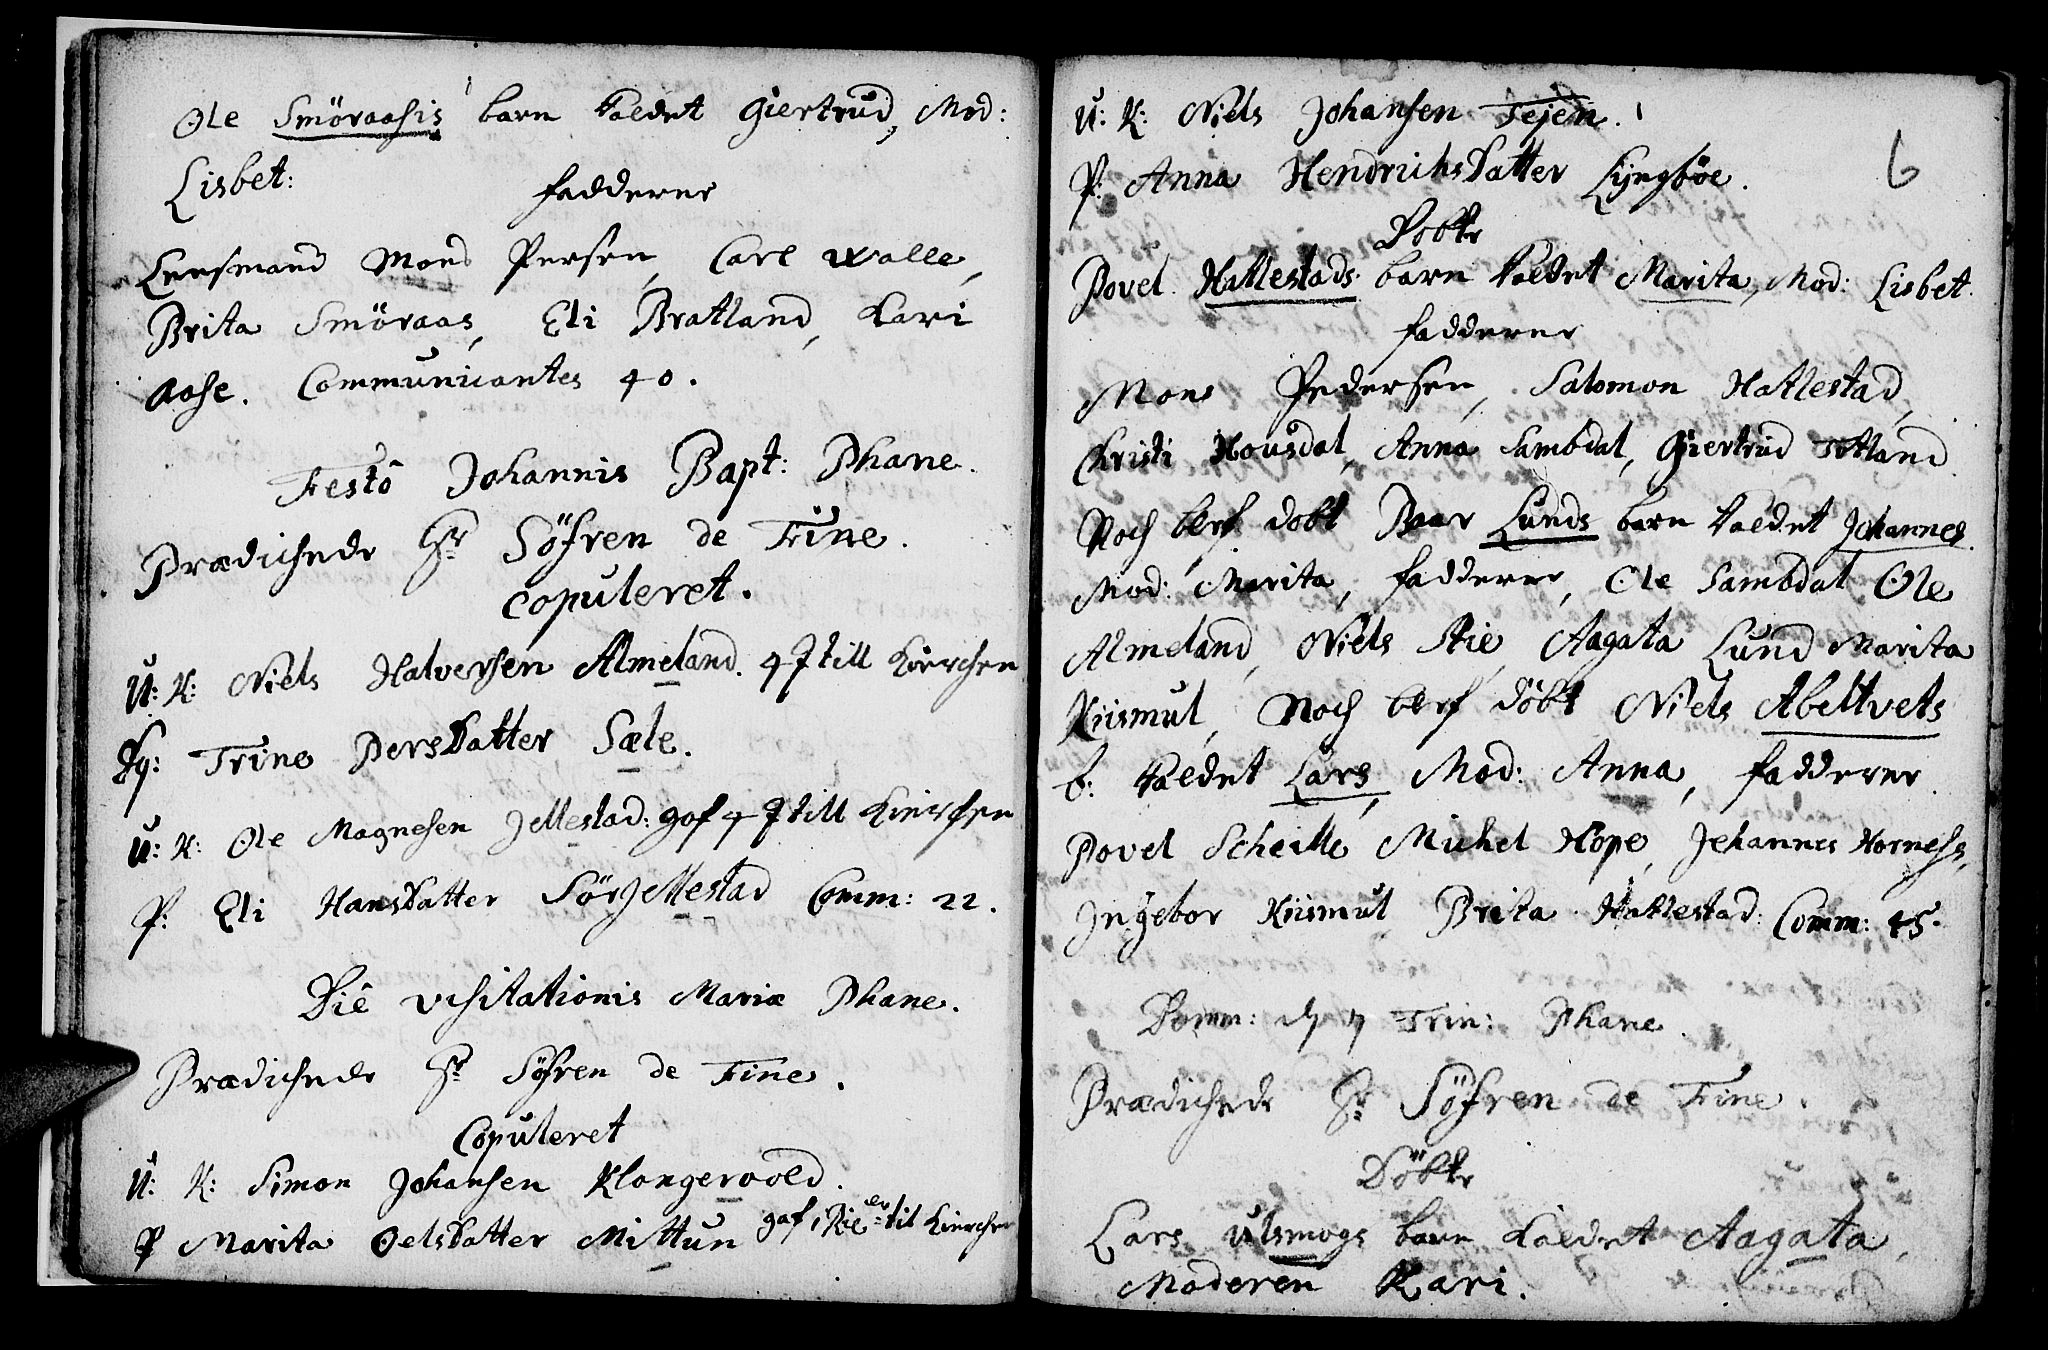 Ole Smöraasis barn kaldet Giertrud, Mod:
Lisbet:
fadderne
Lensmand Mons Persen, Carl Walle,
Brita Smöraas, Eli Bratland, Kari
Aase. Communicantes 40.
Festo Johannis Bapt: Phane.
Prædichede Hr Söfren de Fine.
Copuleret.
U: K: Niels Halversen Almeland. 4 till Kierchen
Pg: Trine PersDatter Sæle.
U: K: Ole Magnesen Jellestad: gaf 4 till Kierchen
P: Eli HansDatter SörJellestad Comm: 22.
Die visitationis Mariæ Phane.
Prædichede Hr Söfren de Fine.
Copuleret
U: K: Simon Johansen Klongervold.
P Marita OelsDatter Mittun gaf 1 til Kierchen
6
U: K: Niels Johansen Tejen.
P: Anna HendrichsDatter Lyngböe.
Döbte
Povel Hatlestads barn kaldet Marita, Mod: Lisbet.
fadderne
Mons Pedersen, Salomon Hatlestad,
Christi Housdal, Anna Samdal, Giertrud Totland
Noch blef dobt Baar Lunds barn kaldet Johannes.
Mod: Marita, fadderne, Ole Samdal Ole
Almeland, Niels Stie, Aagata Lund Marita
Kiismul, Noch blef döbt Niels Abeltvets
b: kaldet Lars, Mod: Anna, fadderne
Povel Scheille Michel Hope, Johannes Horness,
Ingebor Kiismul Brita Hatlestad: Comm: 45.
Domm: 7 Trin: Phane.
Prædichede Hr Söfren de Fine.
Döbte
Lars Ulsmogs barn kaldet Aagata,
Moderen Kari.